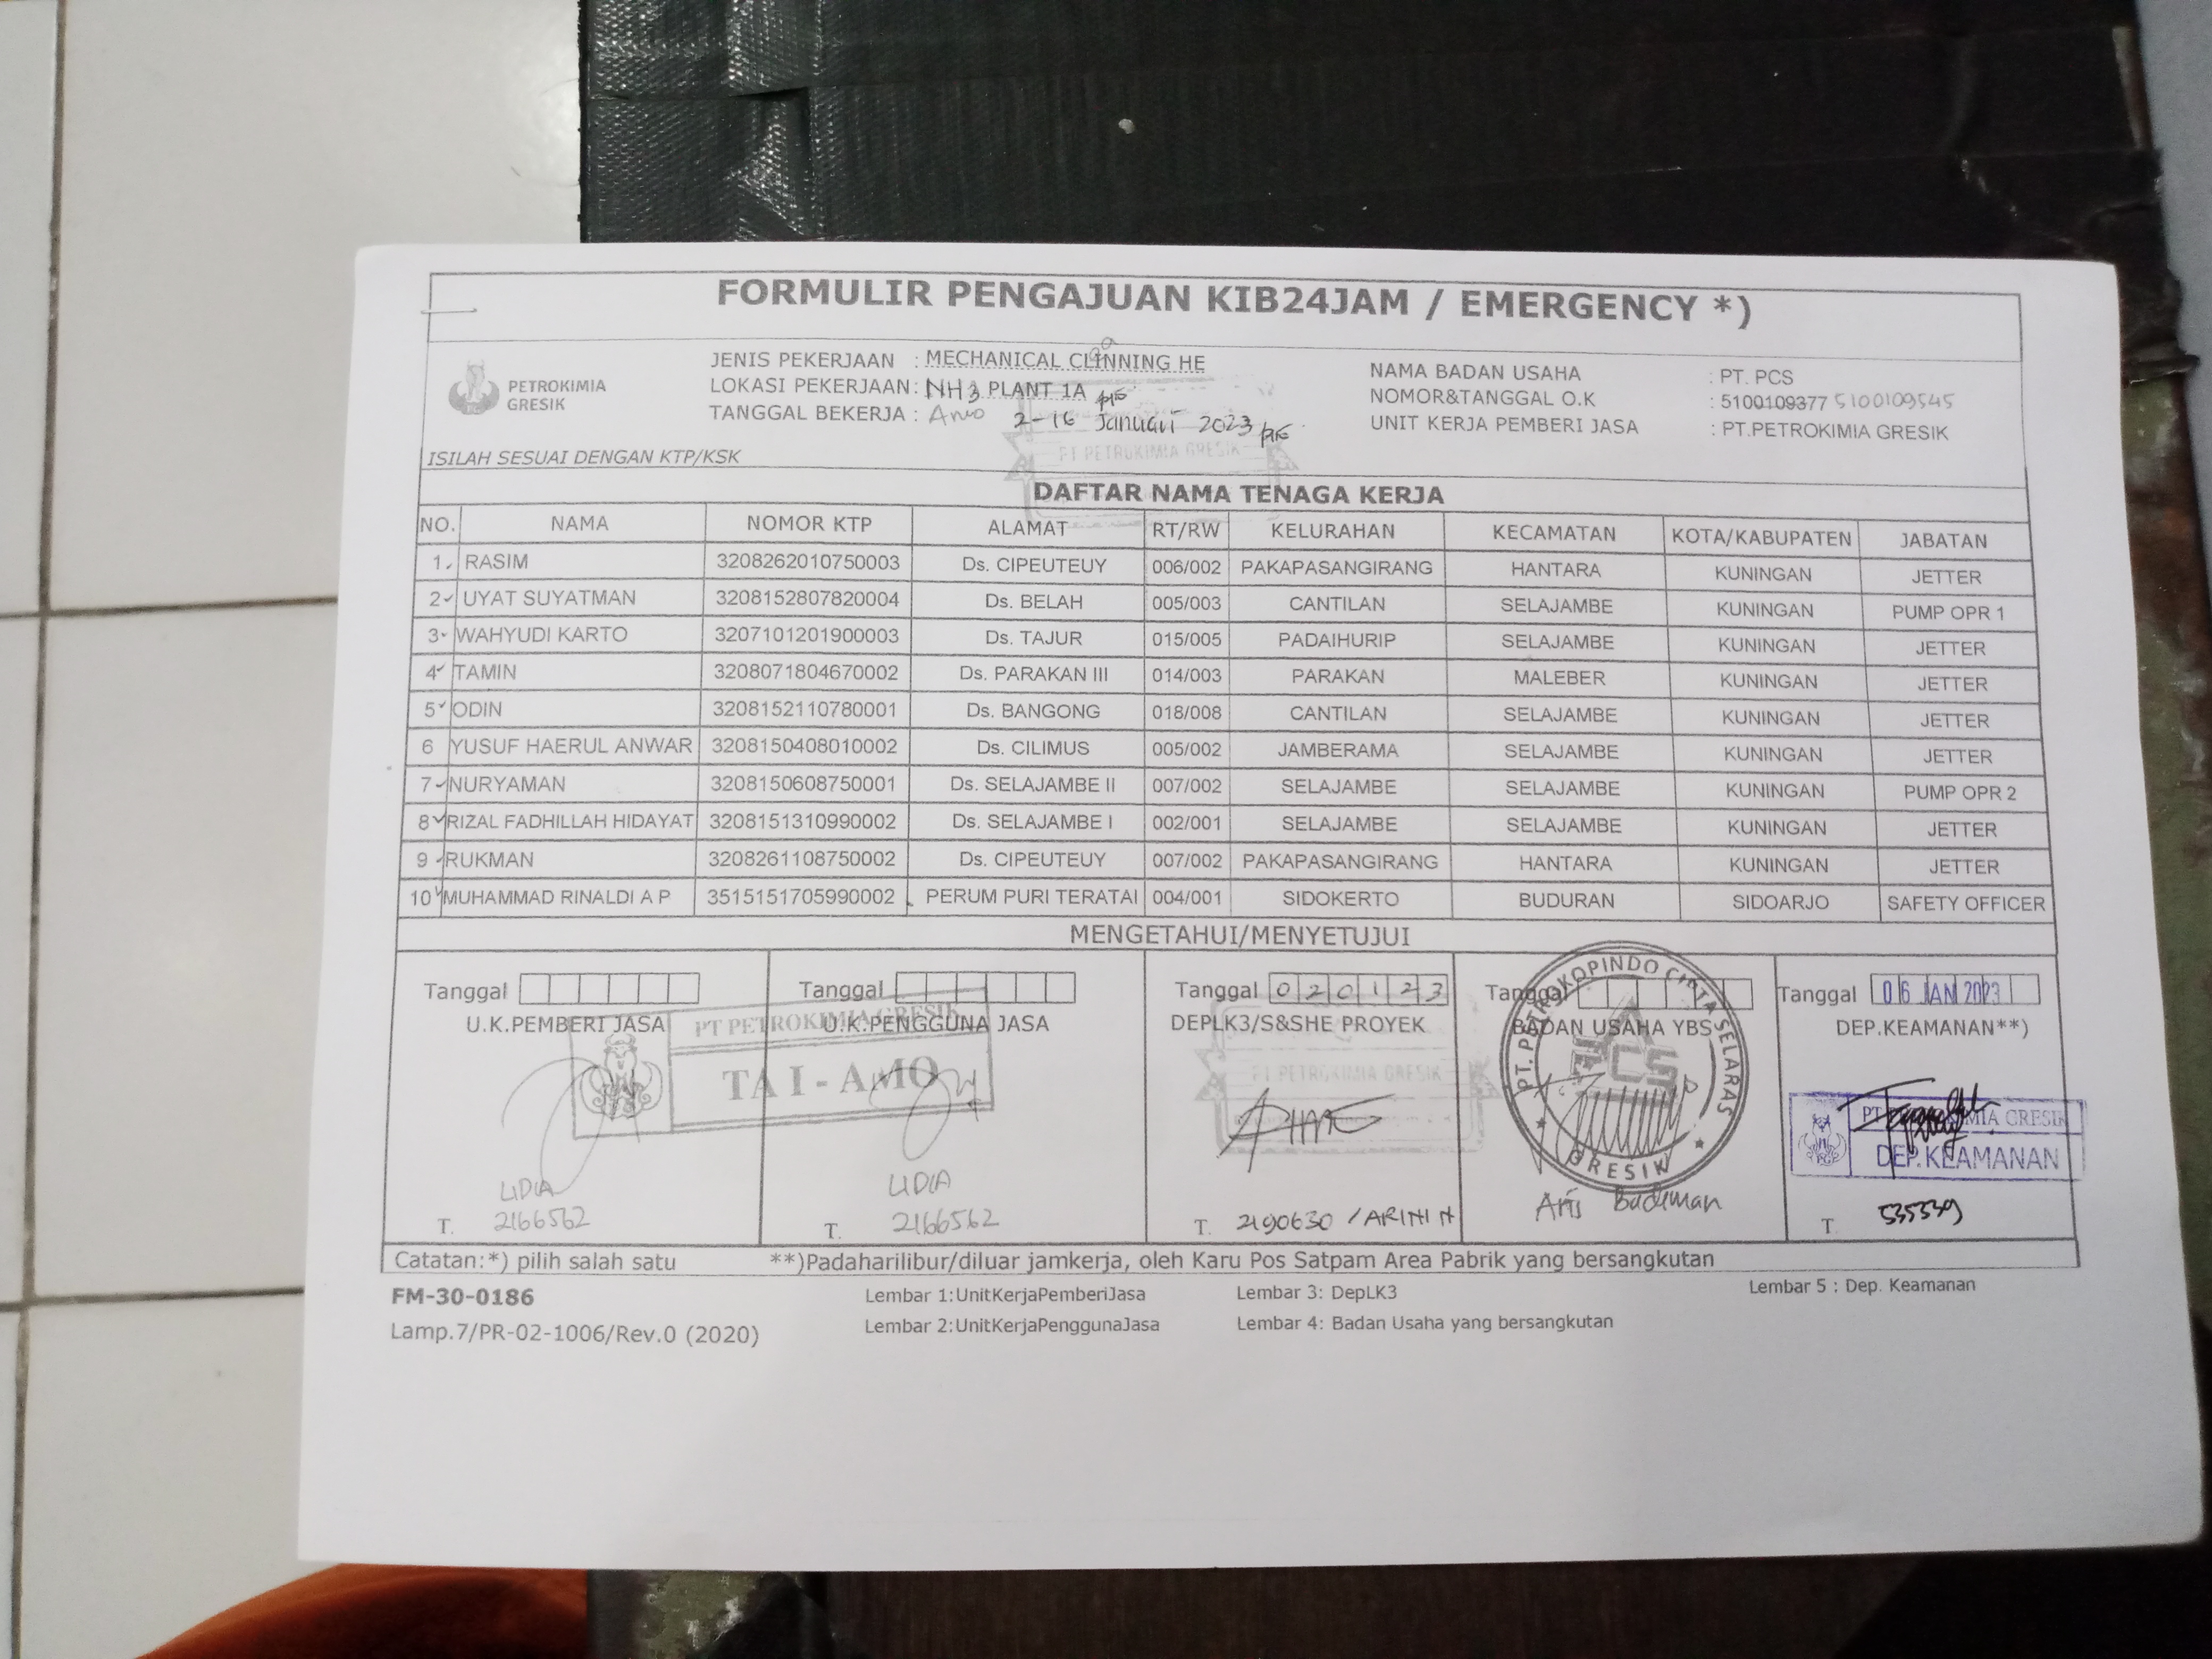 FORMULIR PENGAJUAN KIB24JAM / EMERGENCY *)
PETROKIMIA GRESIK
JENIS PEKERJAAN : MECHANICAL CLINNING HE
LOKASI PEKERJAAN: NH3 PLANT 1A
TANGGAL BEKERJA : 2-16 Januari 2023
NAMA BADAN USAHA : PT. PCS
NOMOR&TANGGAL O.K : 5100109377 5100109545
UNIT KERJA PEMBERI JASA : PT.PETROKIMIA GRESIK
PT PETROKIMIA GRESIK
ISILAH SESUAI DENGAN KTP/KSK
DAFTAR NAMA TENAGA KERJA
NO. NAMA NOMOR KTP ALAMAT RT/RW KELURAHAN KECAMATAN KOTA/KABUPATEN JABATAN
1. RASIM 3208262010750003 Ds. CIPEUTEUY 006/002 PAKAPASANGIRANG HANTARA KUNINGAN JETTER
2 UYAT SUYATMAN 3208152807820004 Ds. BELAH 005/003 CANTILAN SELAJAMBE KUNINGAN PUMP OPR 1
3 WAHYUDI KARTO 3207101201900003 Ds. TAJUR 015/005 PADAIHURIP SELAJAMBE KUNINGAN JETTER
4 TAMIN 3208071804670002 Ds. PARAKAN III 014/003 PARAKAN MALEBER KUNINGAN JETTER
5 ODIN 3208152110780001 Ds. BANGONG 018/008 CANTILAN SELAJAMBE KUNINGAN JETTER
6 YUSUF HAERUL ANWAR 3208150408010002 Ds. CILIMUS 005/002 JAMBERAMA SELAJAMBE KUNINGAN JETTER
7 NURYAMAN 3208150608750001 Ds. SELAJAMBE II 007/002 SELAJAMBE SELAJAMBE KUNINGAN PUMP OPR 2
8 RIZAL FADHILLAH HIDAYAT 3208151310990002 Ds. SELAJAMBE I 002/001 SELAJAMBE SELAJAMBE KUNINGAN JETTER
9 RUKMAN 3208261108750002 Ds. CIPEUTEUY 007/002 PAKAPASANGIRANG HANTARA KUNINGAN JETTER
10 MUHAMMAD RINALDI A P 3515151705990002 PERUM PURI TERATAI 004/001 SIDOKERTO BUDURAN SIDOARJO SAFETY OFFICER
MENGETAHUI/MENYETUJUI
Tanggal Tanggal Tanggal 020123 Tanggal Tanggal 06 JAN 2023
U.K.PEMBERI JASA U.K.PENGGUNA JASA DEPLK3/S&SHE PROYEK BADAN USAHA YBS DEP.KEAMANAN**)
PT PETROKIMIA GRESIK
TA I - AMO
PT PETROKIMIA GRESIK
PT. PETROKOPINDO CIPTA SELARAS
PCS
GRESIK
PT PETROKIMIA GRESIK
DEP.KEAMANAN
LIDIA LIDIA Aris Budiman
T. 2166562 T. 2166562 T. 2190630 / ARINI N T. 535339
Catatan:*) pilih salah satu **)Padaharilibur/diluar jamkerja, oleh Karu Pos Satpam Area Pabrik yang bersangkutan
FM-30-0186 Lembar 1:UnitKerjaPemberiJasa Lembar 3: DepLK3 Lembar 5 : Dep. Keamanan
Lamp.7/PR-02-1006/Rev.0 (2020) Lembar 2:UnitKerjaPenggunaJasa Lembar 4: Badan Usaha yang bersangkutan